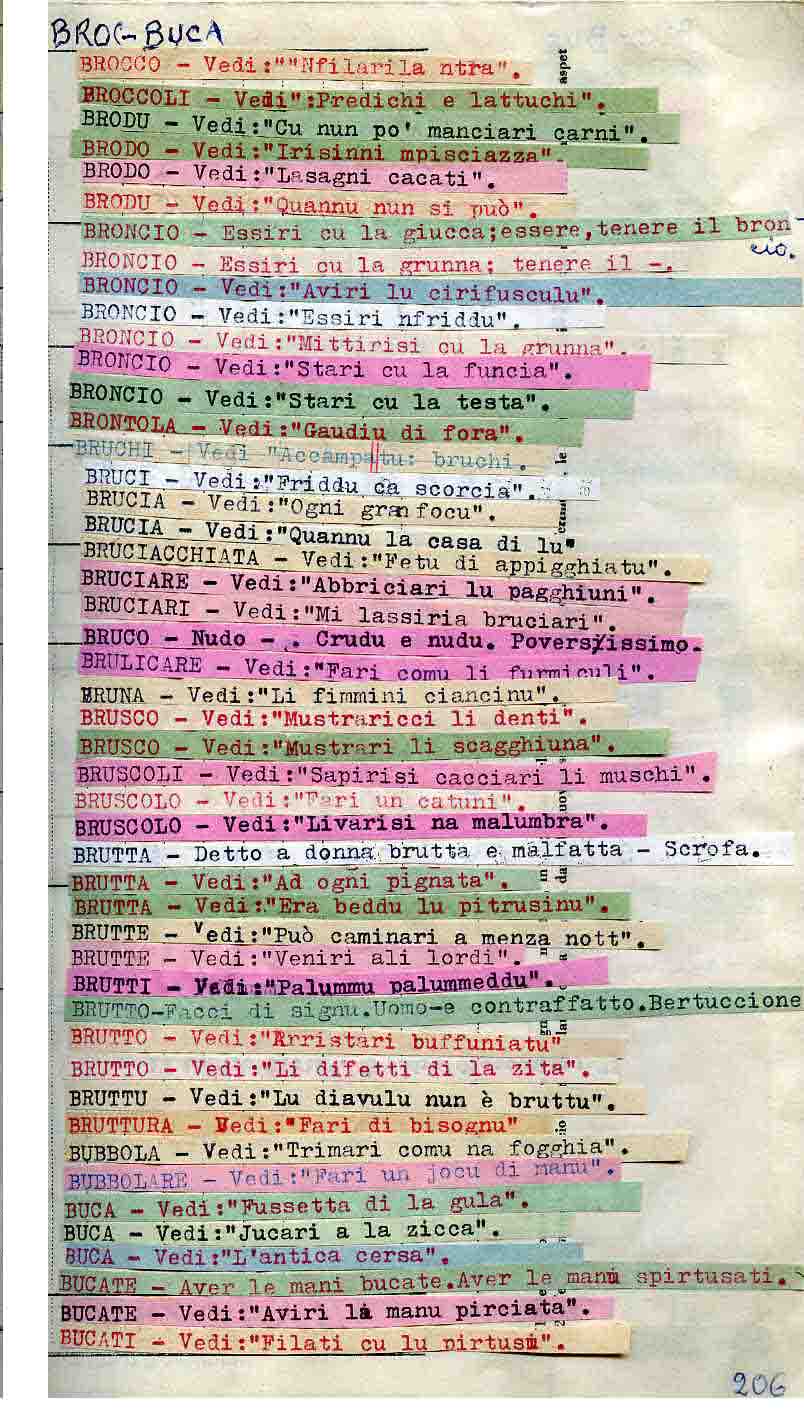 BROC-BUCA
BROCCO - Vedi:""Nfilarila ntra".
BROCCOLI - Vedi":Predichi e lattuchi".
BRODU - Vedi:"Cu nun po' manciari carni".
BRODO - Vedi:"Irisinni mpisciazza".
BRODO - Vedi:"Lasagni cacati".
BRODU - Vedi:"Quannu nun si può".
BRONCIO - Essiri cu la giucca;essere,tenere il bron-
cio.
BRONCIO - Essiri cu la grunna; tenere il -.
BRONCIO - Vedi:"Aviri lu cirifusculu".
BRONCIO - Vedi:"Essiri nfriddu".
BRONCIO - Vedi:"Mittirisi cu la grunna".
BRONCIO - Vedi:"Stari cu la funcia".
BRONCIO - Vedi:"Stari cu la testa".
BRONTOLA - Vedi:"Gaudiu di fora".
BRUCHI - Vedi "Accampatu: bruchi.
BRUCI - Vedi:"Friddu ca scorcia".
BRUCIA - Vedi:"Ogni gran focu".
BRUCIA - Vedi:"Quannu la casa di lu"
BRUCIACCHIATA - Vedi:"Fetu di appigghiatu".
BRUCIARE - Vedi:"Abbriciari lu pagghiuni".
BRUCIARI - Vedi:"Mi lassiria bruciari".
BRUCO - Nudo - . Crudu e nudu. Poverissimo.
BRULICARE - Vedi:"Fari comu li furmiculi".
BRUNA - Vedi:"Li fimmini ciancinu".
BRUSCO - Vedi:"Mustraricci li denti".
BRUSCO - Vedi:"Mustrari li scagghiuna".
BRUSCOLI - Vedi:"Sapirisi cacciari li muschi".
BRUSCOLO - Vedi:"Fari un catuni".
BRUSCOLO - Vedi:"Livarisi na malumbra".
BRUTTA - Detto a donna brutta e malfatta - Scrofa.
BRUTTA - Vedi:"Ad ogni pignata".
BRUTTA - Vedi:"Era beddu lu pitrusinu".
BRUTTE - Vedi:"Può caminari a menza nott".
BRUTTE - Vedi:"Veniri ali lordi".
BRUTTI - Vedi:"Palummu palummeddu".
BRUTTO-Facci di signu.Uomo-e contraffatto.Bertuccione
BRUTTO - Vedi:"Arristari buffuniatu"
BRUTTO - Vedi:"Li difetti di la zita".
BRUTTU - Vedi:"Lu diavulu nun è bruttu".
BRUTTURA - Vedi:"Fari di bisognu"
BUBBOLA - Vedi:"Trimari comu na fogghia".
BUBBOLARE - Vedi:"Fari un jocu di manu".
BUCA - Vedi:"Fussetta di la gula".
BUCA - Vedi:"Jucari a la zicca".
BUCA - Vedi:"L'antica cersa".
BUCATE - Aver le mani bucate.Aver le manu spirtusati.
BUCATE - Vedi:"Aviri la manu pirciata".
BUCATI - Vedi:"Filati cu lu pirtusu".
206